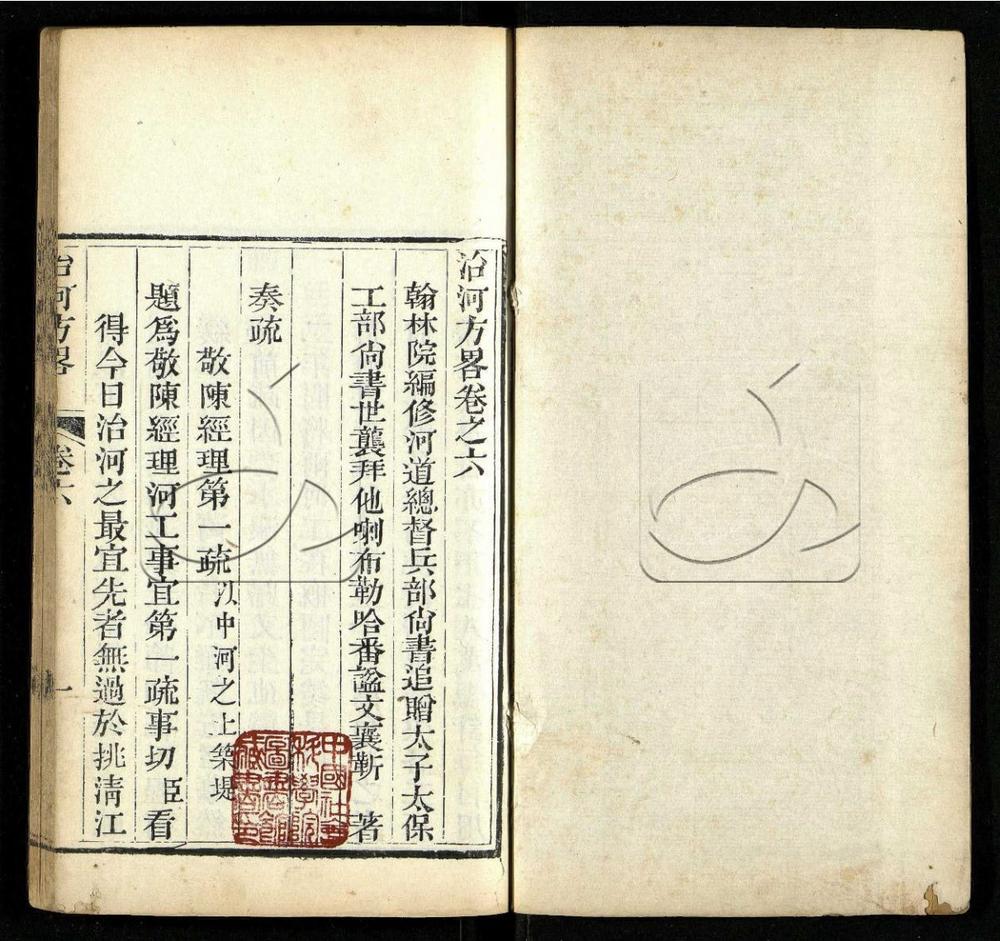 治河方畧卷之六
翰林院編修河道總督兵部尙書追贈太子太保
工部尙書世襲拜他喇布勒哈番諡文襄靳 著
奏疏
敬陳經理第一疏
中河之上築堤
題爲敬陳經理河工事宜第一疏事切 臣 看
得今日治河之最宜先者無過於挑淸江
治河方畧
卷六
一
中國社
科學院
圖書館
藏書